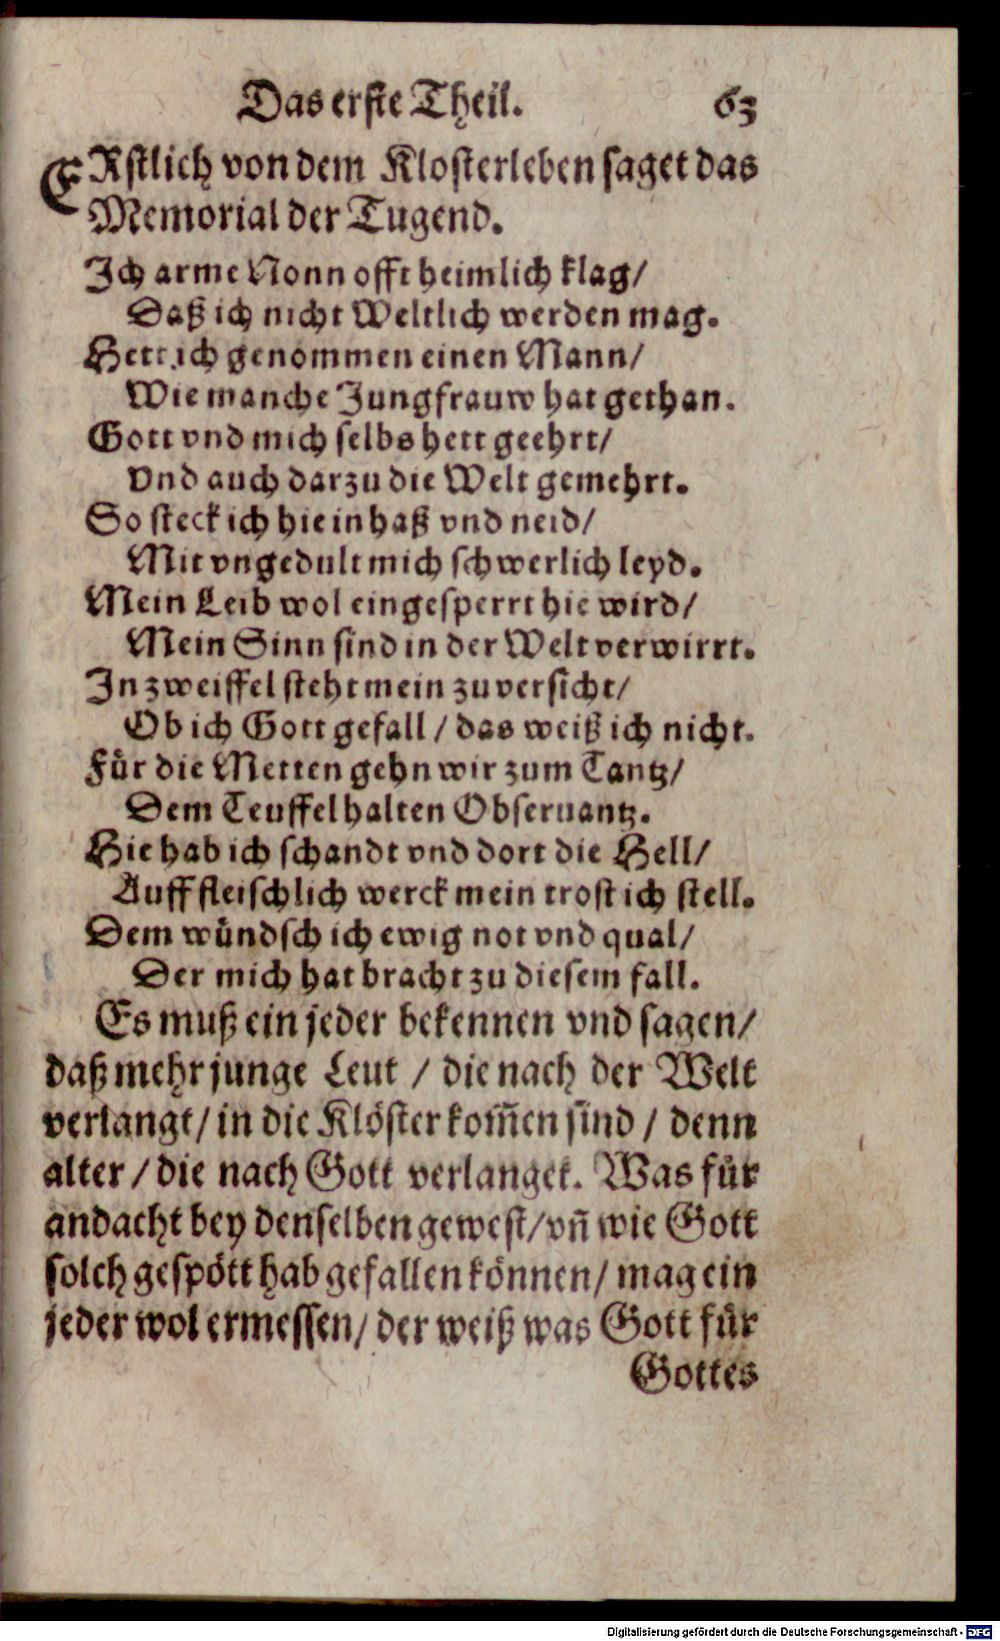 Das erste Theil. 63
ERstlich von dem Klosterleben saget das
Memorial der Tugend.
Ich arme Nonn offt heimlich klag/
Daß ich nicht Weltlich werden mag.
Hett ich genommen einen Mann/
Wie manche Jungfrauw hat gethan.
Gott vnd mich selbs hett geehrt/
Vnd auch darzu die Welt gemehrt.
So steck ich hie in haß vnd neid/
Mit vngedult mich schwerlich leyd.
Mein Leib wol eingesperrt hie wird/
Mein Sinn sind in der Welt verwirrt.
In zweiffel steht mein zuversicht/
Ob ich Gott gefall / das weiß ich nicht.
Für die Metten gehn wir zum Tantz/
Dem Teuffel halten Obseruantz.
Hie hab ich schandt vnd dort die Hell/
Auff fleischlich werck mein trost ich stell.
Dem wündsch ich ewig not vnd qual/
Der mich hat bracht zu diesem fall.
Es muß ein jeder bekennen vnd sagen/
daß mehr junge Leut / die nach der Welt
verlangt/ in die Klöster kom̃en sind / denn
alter / die nach Gott verlanget. Was für
andacht bey denselben gewest/ vñ wie Gott
solch gespött hab gefallen können/ mag ein
jeder wol ermessen/ der weiß was Gott für
Gottes
Digitalisierung gefördert durch die Deutsche Forschungsgemeinschaft - DFG